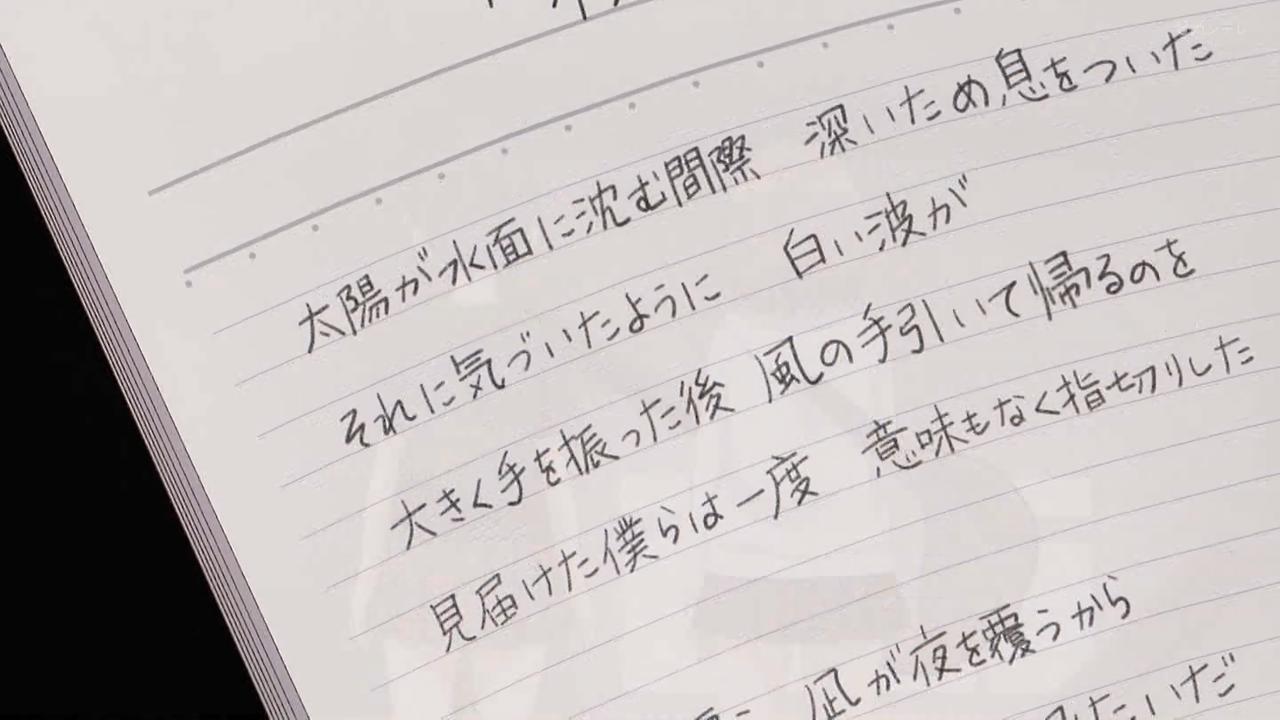 太陽が水面に沈む間際 深いため息をついた
それに気づいたように 白い波が
大きく手を振った後 風の手引いて帰るのを
見届けた僕らは一度 意味もなく指切りした
凪が夜を覆うから